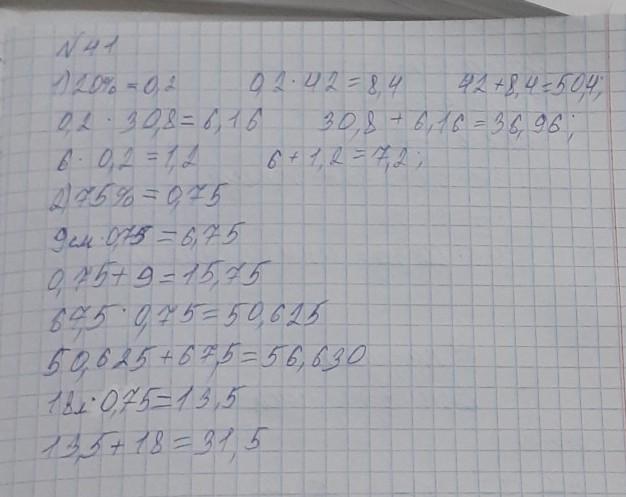 N 41
1) 20% = 0,2 0,2 · 42 = 8,4 42 + 8,4 = 50,4;
0,2 · 30,8 = 6,16 30,8 + 6,16 = 36,96;
6 · 0,2 = 1,2 6 + 1,2 = 7,2;
2) 75% = 0,75
9см · 0,75 = 6,75
0,75 + 9 = 15,75
67,5 · 0,75 = 50,625
50,625 + 67,5 = 56,630
18л · 0,75 = 13,5
13,5 + 18 = 31,5